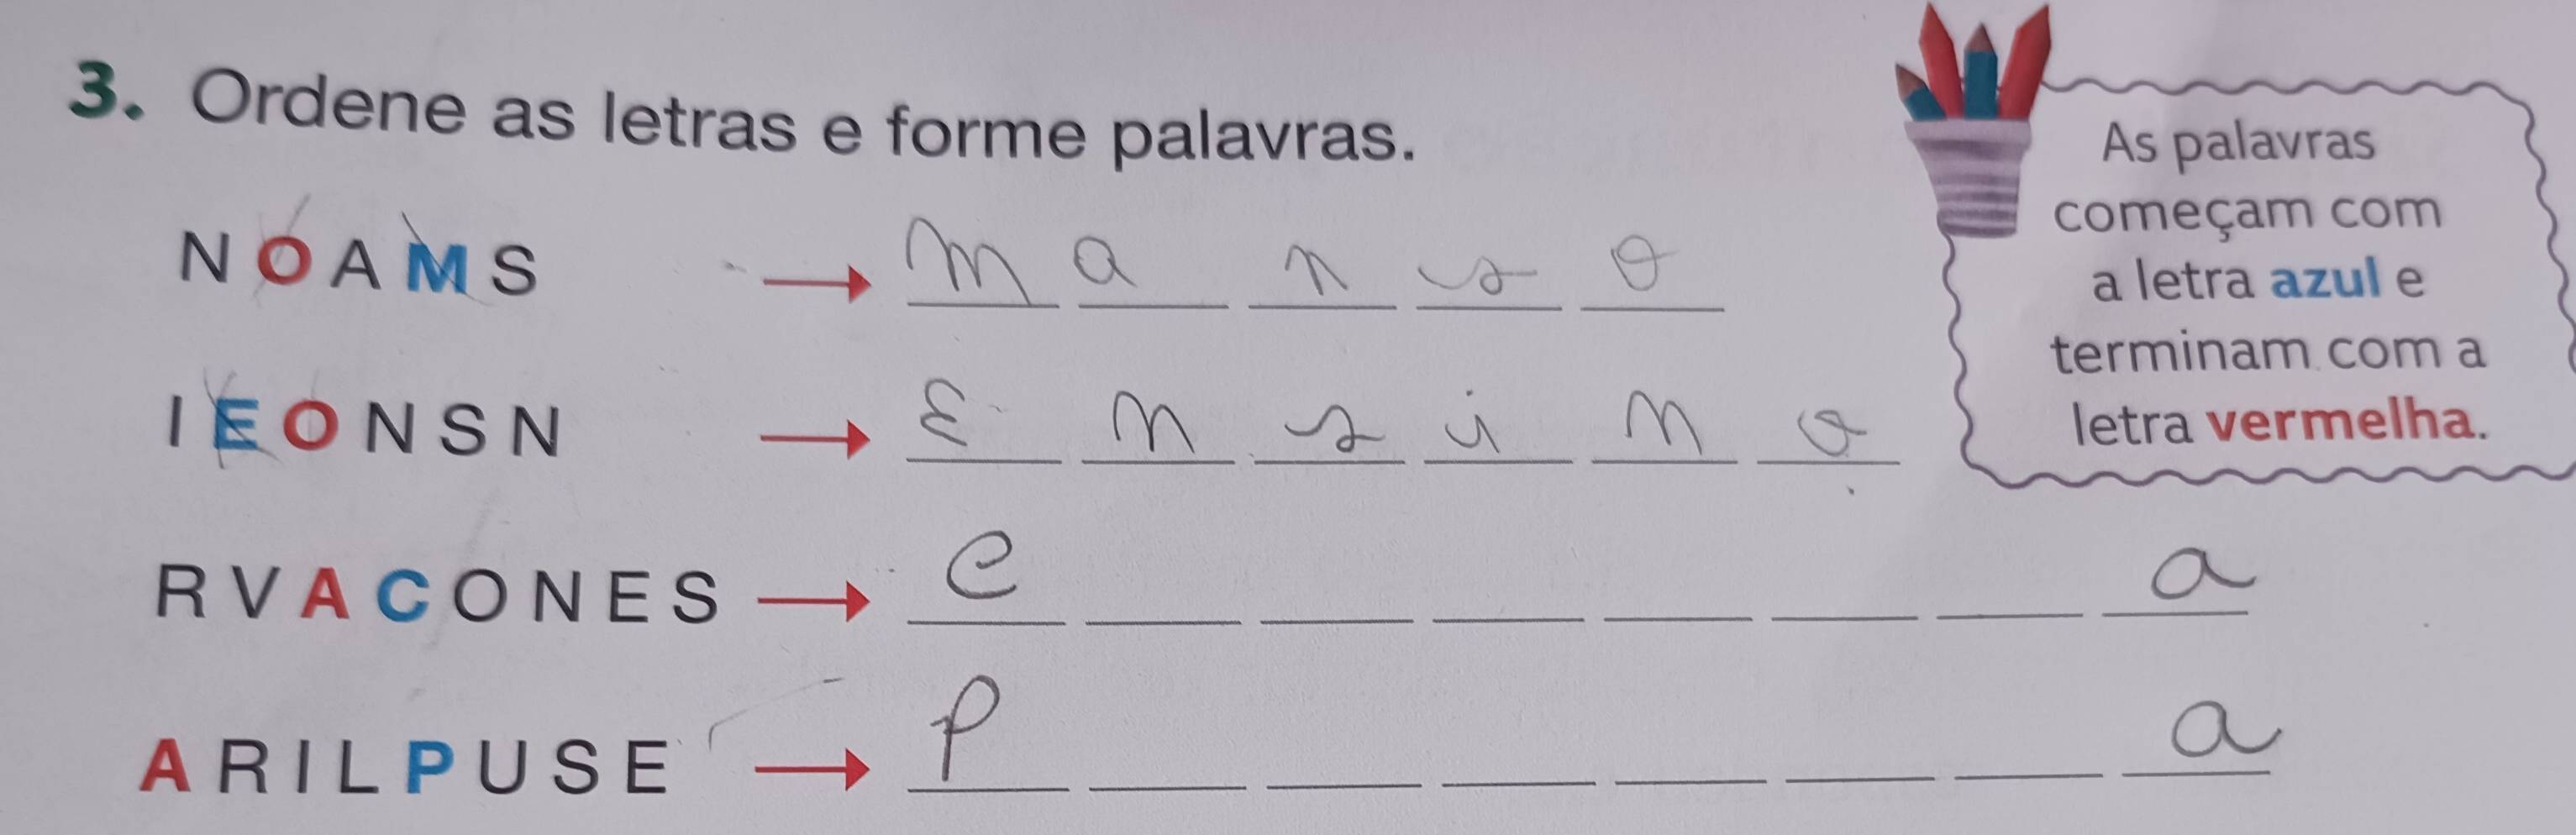 3. Ordene as letras e forme palavras.
As palavras
começam com
a letra azul e
terminam com a
letra vermelha.
N O A M S → M a n s o
I E O N S N → E n s i n o
R V A C O N E S → C _ _ _ _ _ _ a
A R I L P U S E → P _ _ _ _ _ _ a